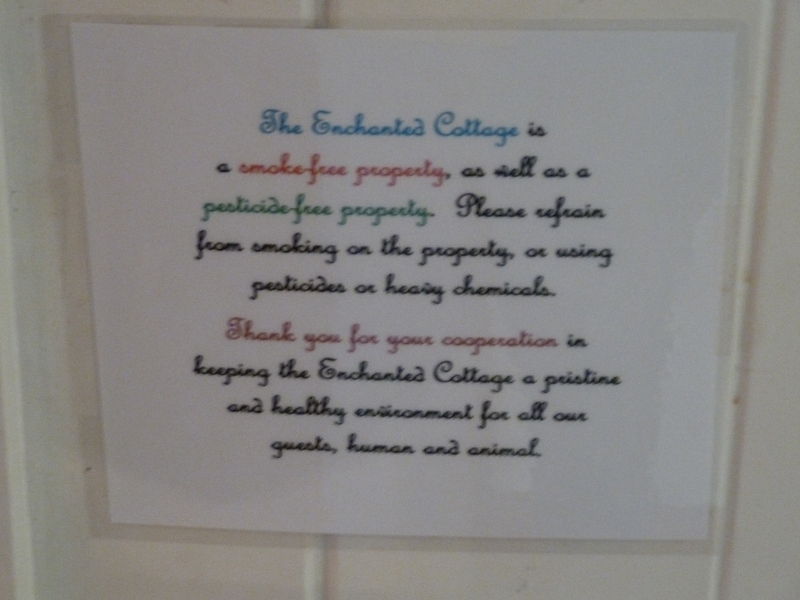 The Enchanted Cottage is
a smoke-free property, as well as a
pesticide-free property. Please refrain
from smoking on the property, or using
pesticides or heavy chemicals.
Thank you for your cooperation in
keeping the Enchanted Cottage a pristine
and healthy environment for all our
guests, human and animal.